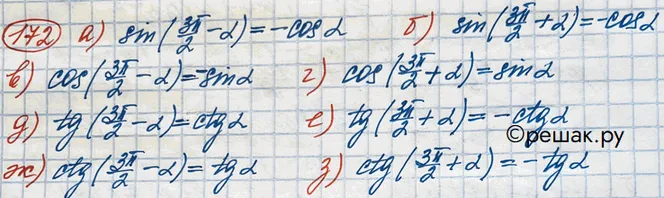 172 а) sin(3π/2 - α) = -cosα б) sin(3π/2 + α) = -cosα
в) cos(3π/2 - α) = -sinα г) cos(3π/2 + α) = sinα
д) tg(3π/2 - α) = ctgα е) tg(3π/2 + α) = -ctgα
©решак.ру
ж) ctg(3π/2 - α) = tgα з) ctg(3π/2 + α) = -tgα